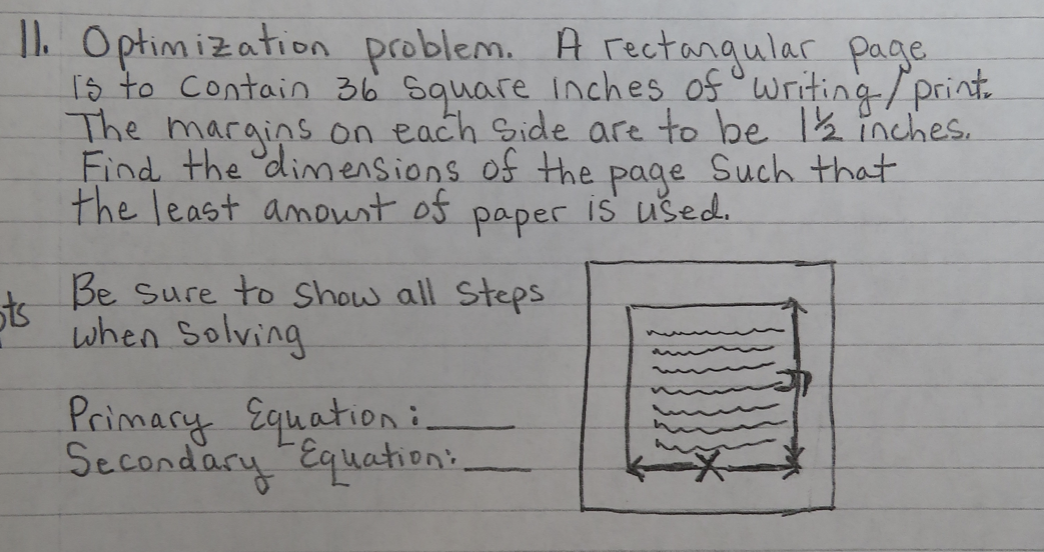 11. Optimization problem. A rectangular page
is to contain 36 square inches of writing/print.
The margins on each side are to be 1½ inches.
Find the dimensions of the page such that
the least amount of paper is used.
Be sure to show all steps
when solving
Primary Equation:____
Secondary Equation:____
x